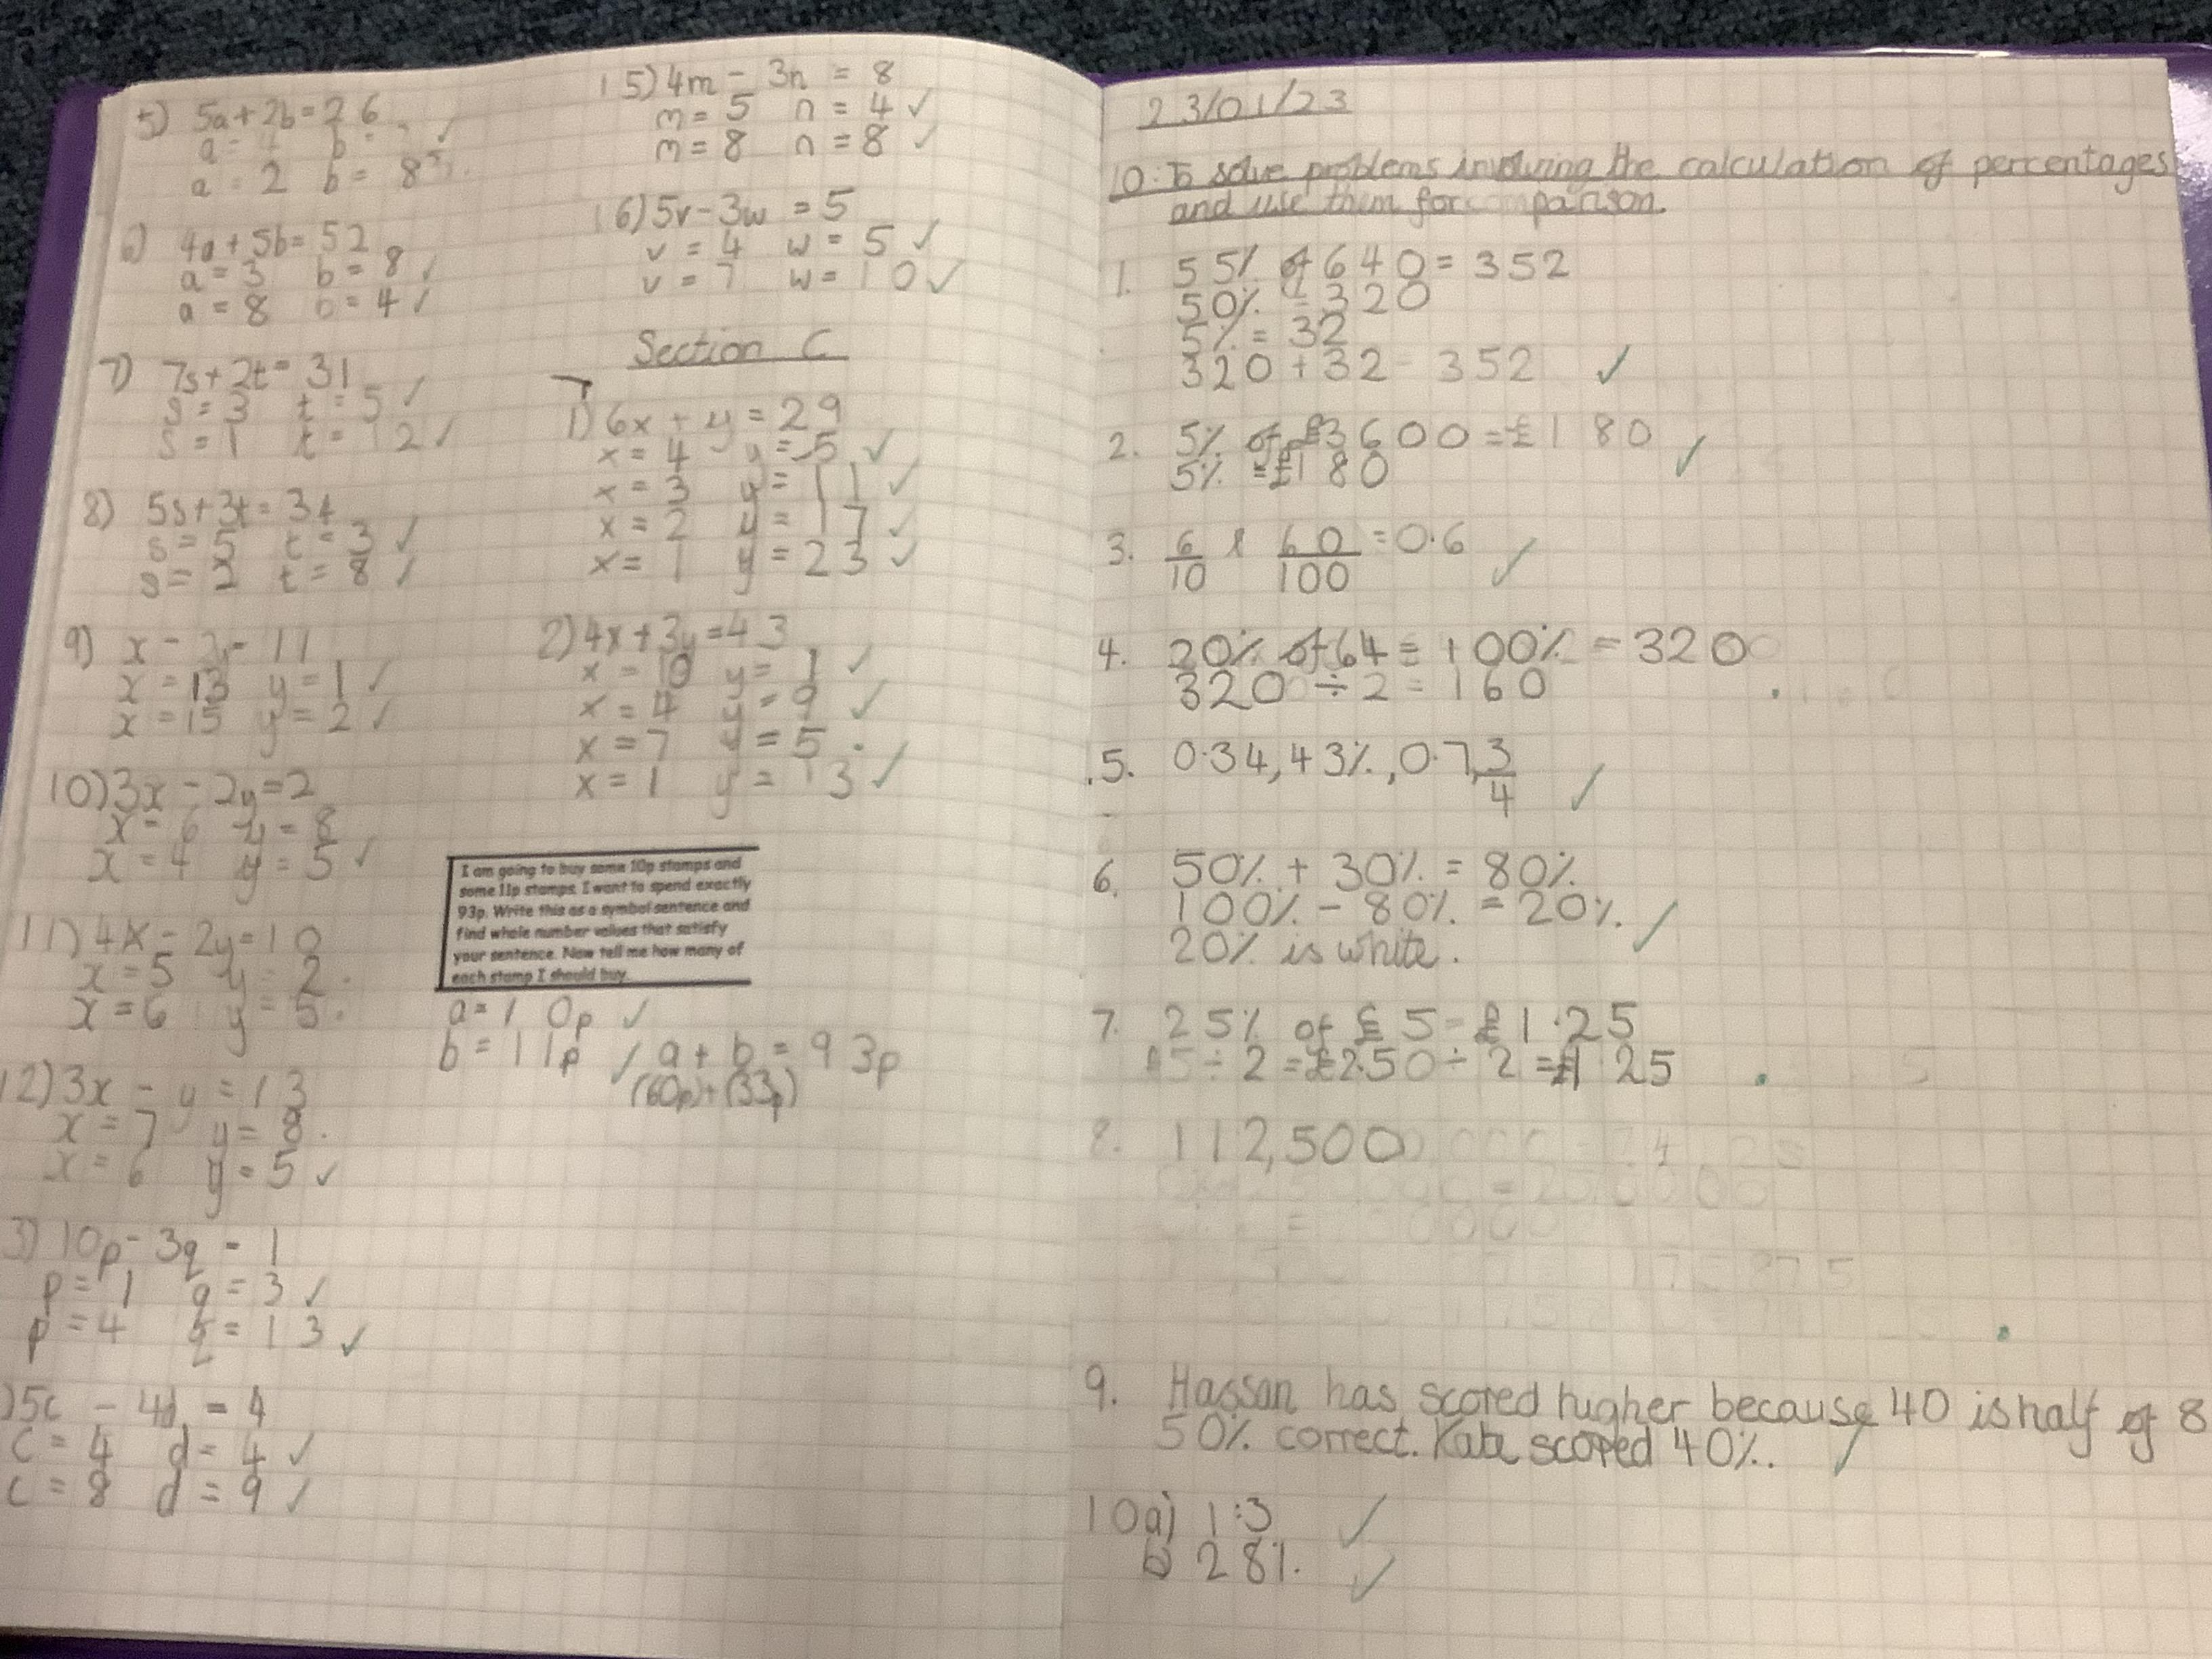 5) 5a+2b=26
a = b =
a = 2 b = 8
6) 4a + 5b= 52
a = 3 b = 8 ✓
a = 8 b = 4 ✓
7) 7s+2t= 31
s = 3 t = 5 ✓
s = 1 t = 12 ✓
8) 5s+3t= 34
s = 5 t = 3 ✓
s = 2 t = 8 ✓
9) x - 2y= 11
x = 13 y = 1 ✓
x = 15 y = 2 ✓
10) 3x - 2y=2
x = 6 y = 8
x = 4 y = 5 ✓
11) 4x - 2y=10
x = 5 y = 2 .
x = 6 y = 5 .
12) 3x - y = 13
x = 7 y = 8 .
x = 6 y = 5 ✓
3) 10p - 3q = 1
p = 1 q = 3 ✓
p = 4 q = 13 ✓
) 5c - 4d = 4
c = 4 d = 4 ✓
c = 8 d = 9 ✓
15) 4m - 3n = 8
m = 5 n = 4 ✓
m = 8 n = 8 ✓
16) 5v - 3w = 5
v = 4 w = 5 ✓
v = 7 w = 10 ✓
Section C
1) 6x + y = 29
x = 4 y = 5 ✓
x = 3 y = 11 ✓
x = 2 y = 17 ✓
x = 1 y = 23 ✓
2) 4x + 3y = 43
x = 10 y = 1 ✓
x = 4 y = 9 ✓
x = 7 y = 5 .
x = 1 y = 13 ✓
I am going to buy some 10p stamps and
some 11p stamps. I want to spend exactly
93p. Write this as a symbol sentence and
find whole number values that satisfy
your sentence. Now tell me how many of
each stamp I should buy.
a = 10p ✓
b = 11p ✓ a + b = 93p
(60p)+(33p)
23/01/23
10: To solve problems involving the calculation of percentages
and use them for comparison.
1. 55% of 640 = 352
50% = 320
5% = 32
320 + 32 = 352 ✓
2. 5% of £3600 = £180
5% = £180 ✓
3. 6/10 & 60/100 = 0.6 ✓
4. 20% of 64 = 100% = 320
320 ÷ 2 = 160 .
.5. 0.34, 43%, 0.7, 3/4 ✓
6. 50% + 30% = 80%
100% - 80% = 20% ✓
20% is white.
7. 25% of £5 = £1.25
£5 ÷ 2 = £2.50 ÷ 2 = £1.25 .
8. 112,500
9. Hassan has scored higher because 40 is half of 8
50% correct. Kate scored 40%. ✓
10a) 1:3 ✓
b) 28%. ✓